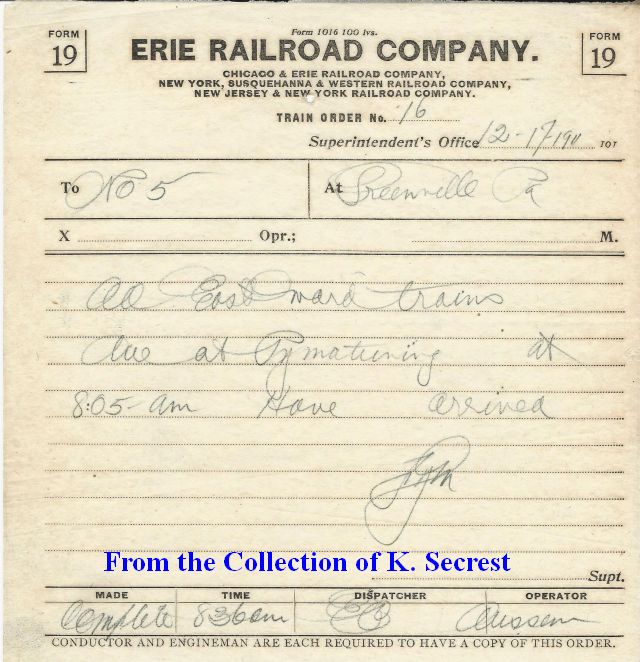 Form 1016 100 lvs.
FORM 19
FORM 19
ERIE RAILROAD COMPANY.
CHICAGO & ERIE RAILROAD COMPANY,
NEW YORK, SUSQUEHANNA & WESTERN RAILROAD COMPANY,
NEW JERSEY & NEW YORK RAILROAD COMPANY.
TRAIN ORDER No. 16
Superintendent's Office 12-17 190 101
To No 5 At Greenville Pa
X Opr.; M.
All East ward trains
due at Pymatuning at
8:05 am Have arrived
From the Collection of K. Secrest
Supt.
MADE TIME DISPATCHER OPERATOR
Complete 836am
CONDUCTOR AND ENGINEMAN ARE EACH REQUIRED TO HAVE A COPY OF THIS ORDER.